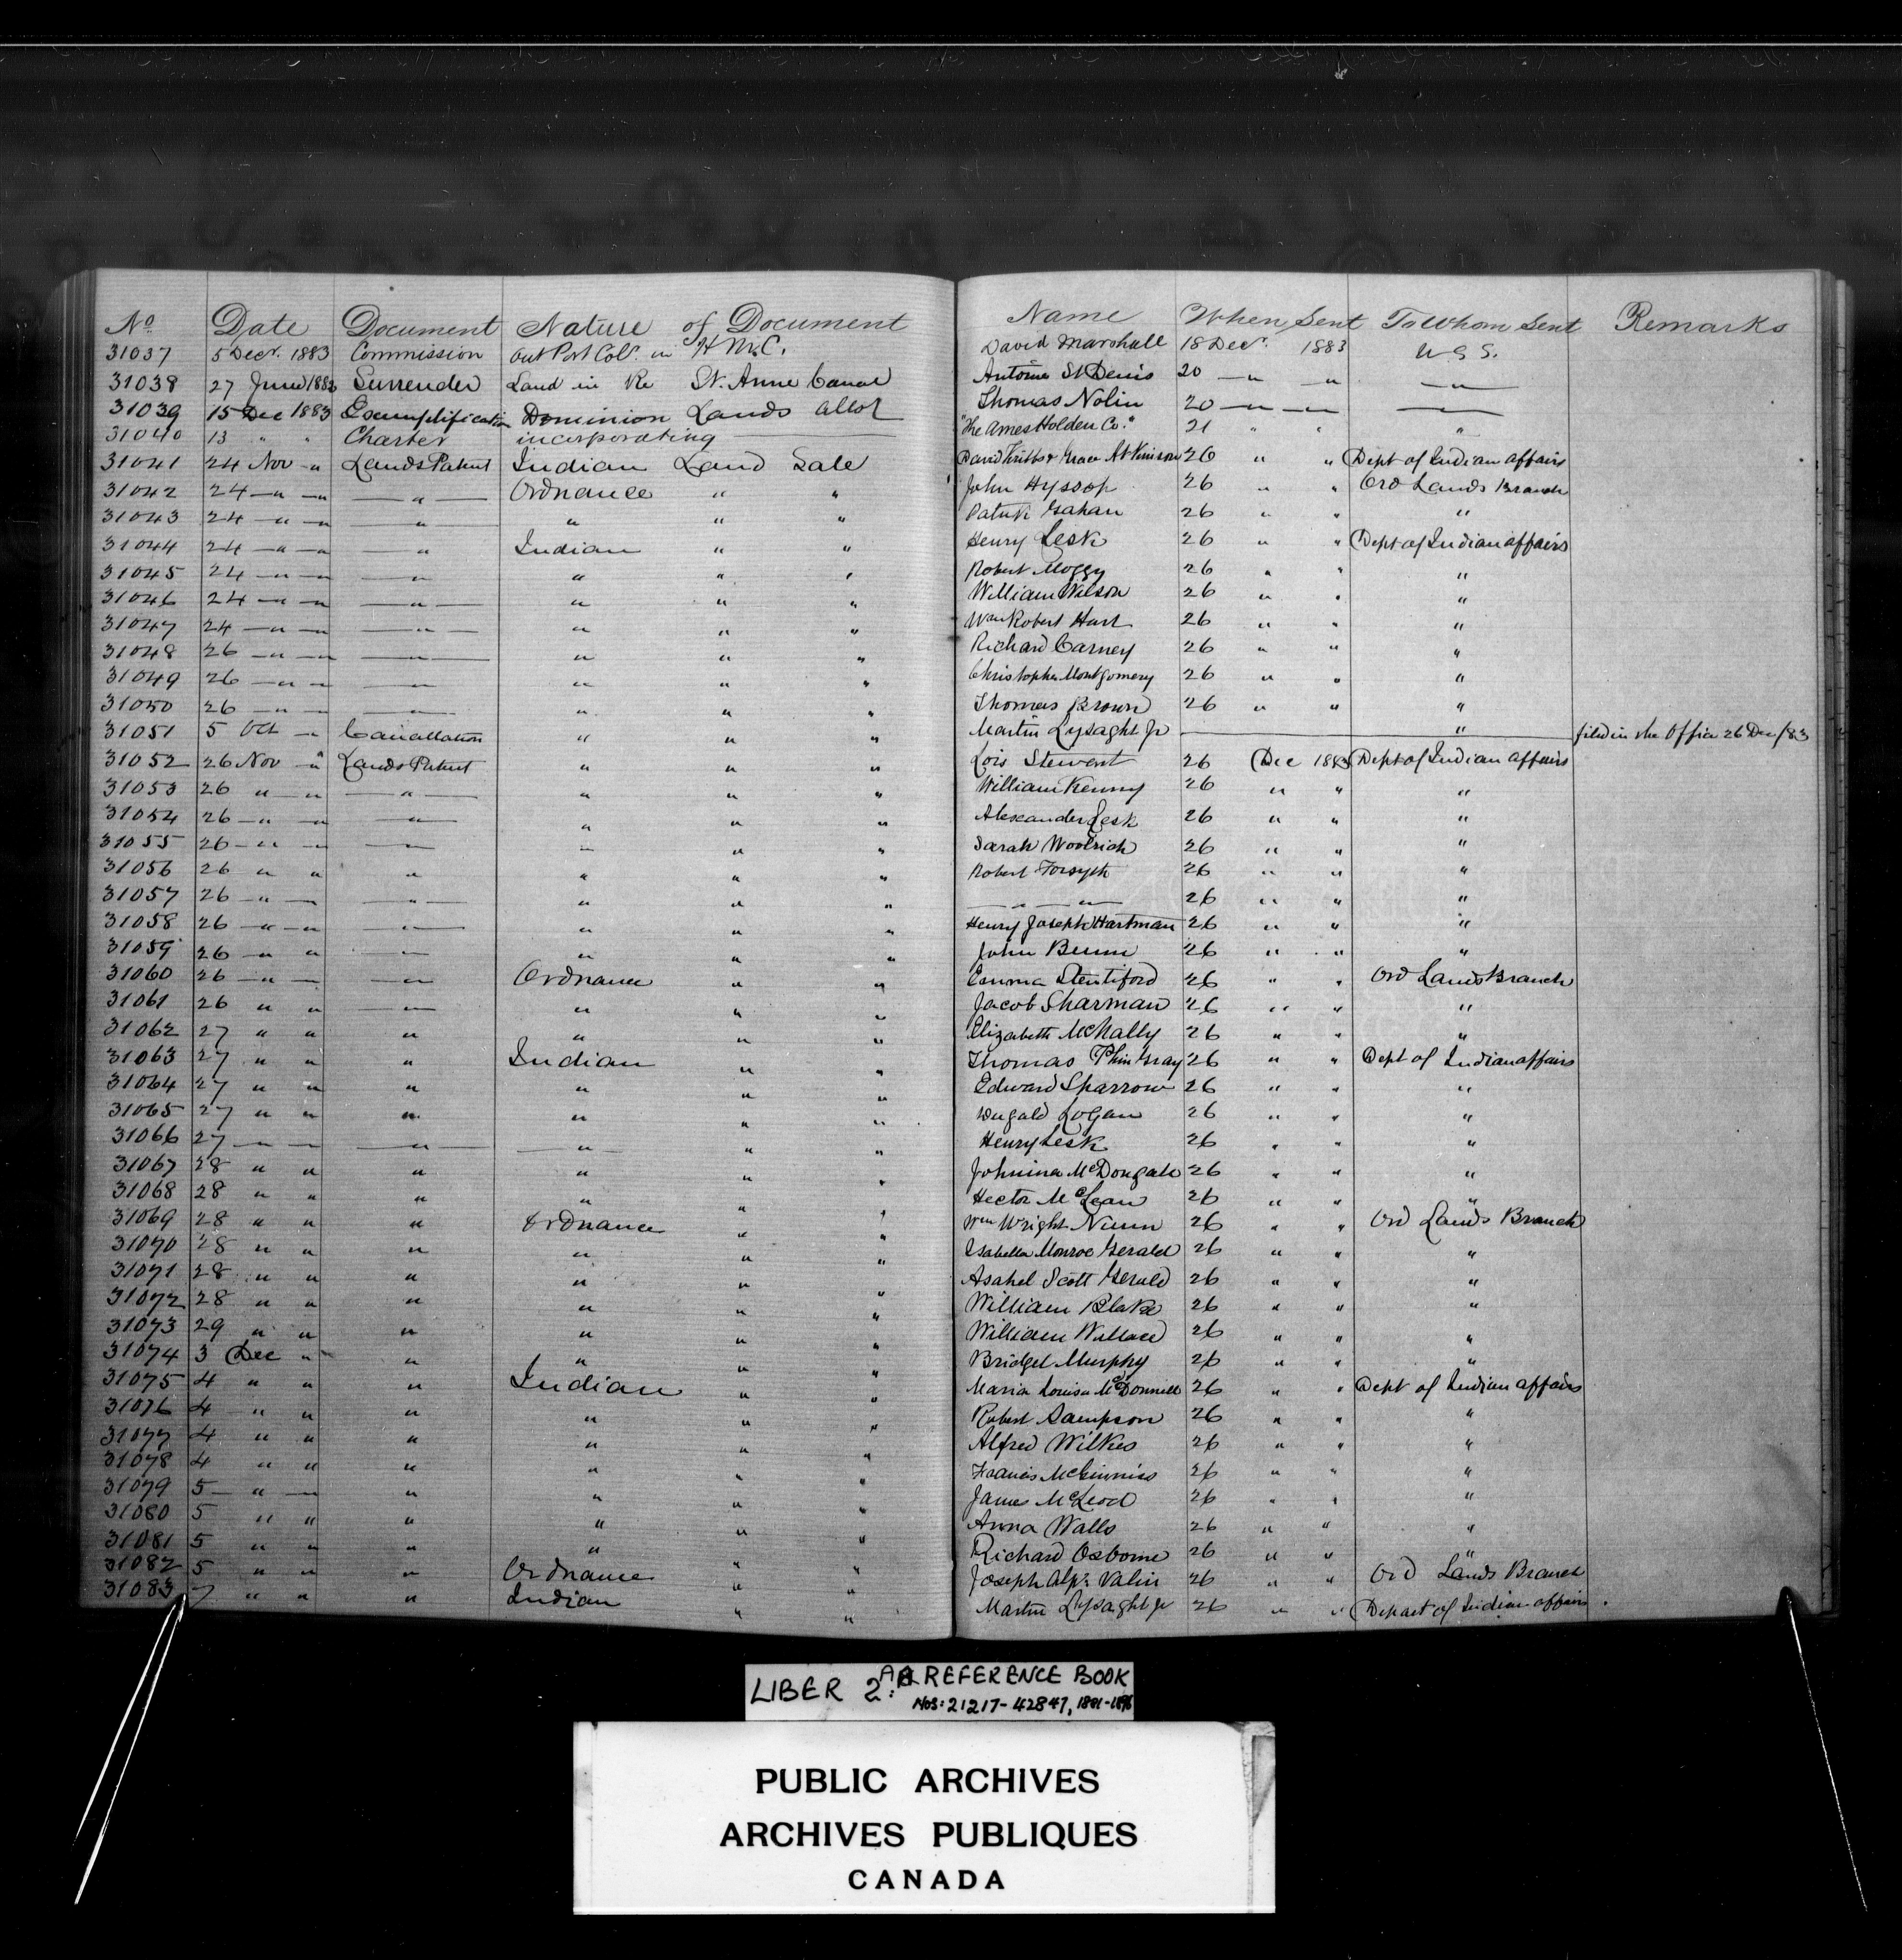 No Date Document Nature of Document Name When Sent To Whom Sent Remarks
31037 5 Decr. 1883 Commission out Port Colr. in H.M.C. David Marshall 18 Decr. 1883 U.S.S.
31038 27 June 1882 Surrender Land in Re St. Anne Canal Antoine St Denis 20 — " — " — " —
31039 15 Dec 1883 Exemplification Dominion Lands allot Thomas Nolin 20 — " — " — " —
31040 13 " " Charter incorporating "The Ames Holden Co." 21 " " "
31041 24 Nov " Lands Patent Indian Land Sale David Kribbs & Grace Atkinson 26 " " Dept of Indian affairs
31042 24 — " — " — " — Ordnance " " John Hyssop 26 " " Ord Lands Branch
31043 24 — " — " — " — " " " Patrick Gahan 26 " " "
31044 24 — " — " " Indian " " Henry Lesk 26 " " Dept of Indian affairs
31045 24 — " — " " " " " Robert Moggy 26 " " "
31046 24 — " — " — " — " " " William Wilson 26 " " "
31047 24 — " — " — " — " " " Wm Robert Hart 26 " " "
31048 26 — " — " — " — " " " Richard Carney 26 " " "
31049 26 — " — " — " — " " " Christopher Montgomery 26 " " "
31050 26 — " — " — " — " " " Thomas Brown 26 " " "
31051 5 Oct " Cancellation " " " Martin Lysaght Jr — " — filed in the Office 26 Dec/83
31052 26 Nov " Lands Patent " " " Lois Stewart 26 Dec 1883 Dept of Indian affairs
31053 26 " " — " — " " " William Kenny 26 " " "
31054 26 — " — " — " — " " " Alexander Lesk 26 " " "
31055 26 — " — " — " — " " " Sarah Woolrich 26 " " "
31056 26 " " " " " " Robert Forsyth 26 " " "
31057 26 — " — " — " — " " " — " — " — 26 " " "
31058 26 — " — " — " — " " " Henry Joseph Hartman 26 " " "
31059 26 — " " — " — " " " John Bunn 26 " " "
31060 26 — " — " — " — Ordnance " " Emma Stentiford 26 " " Ord Lands Branch
31061 26 " " — " — " " " Jacob Sharman 26 " " "
31062 27 " " " " " " Elizabeth McNally 26 " " "
31063 27 " " " Indian " " Thomas Phin Gray 26 " " Dept of Indian affairs
31064 27 " " " " " " Edward Sparrow 26 " " "
31065 27 " " " " " " Dugald Logan 26 " " "
31066 27 — " — " — " — — " — " " Henry Lesk 26 " " "
31067 28 " " " " " " Johnina McDougall 26 " " "
31068 28 " " " " " " Hector McLean 26 " " "
31069 28 " " " Ordnance " " Wm Wright Nunn 26 " " Ord Lands Branch
31070 28 " " " " " " Isabella Monroe Gerald 26 " " "
31071 28 " " " " " " Asahel Scott Gerald 26 " " "
31072 28 " " " " " " William Blake 26 " " "
31073 29 " " " " " " William Wallace 26 " " "
31074 3 Dec " " " " " Bridget Murphy 26 " " "
31075 4 " " " Indian " " Maria Louisa McDonnell 26 " " Dept of Indian affairs
31076 4 " " " " " " Robert Sampson 26 " " "
31077 4 " " " " " " Alfred Wilkes 26 " " "
31078 4 " " " " " " Francis McGinniss 26 " " "
31079 5 — " — " " " " Francis James McLeod 26 " " "
31080 5 " " " " " " Anna Walls 26 " " "
31081 5 " " " " " " Richard Osborne 26 " " "
31082 5 " " " Ordnance " " Joseph Alpr. Valin 26 " " Ord Lands Branch
31083 7 " " " Indian " " Martin Lysaght Jr 26 " " Depart of Indian affairs
LIBER 2: AB REFERENCE BOOK
NOS: 21217-42847, 1881-1896
PUBLIC ARCHIVES
ARCHIVES PUBLIQUES
CANADA